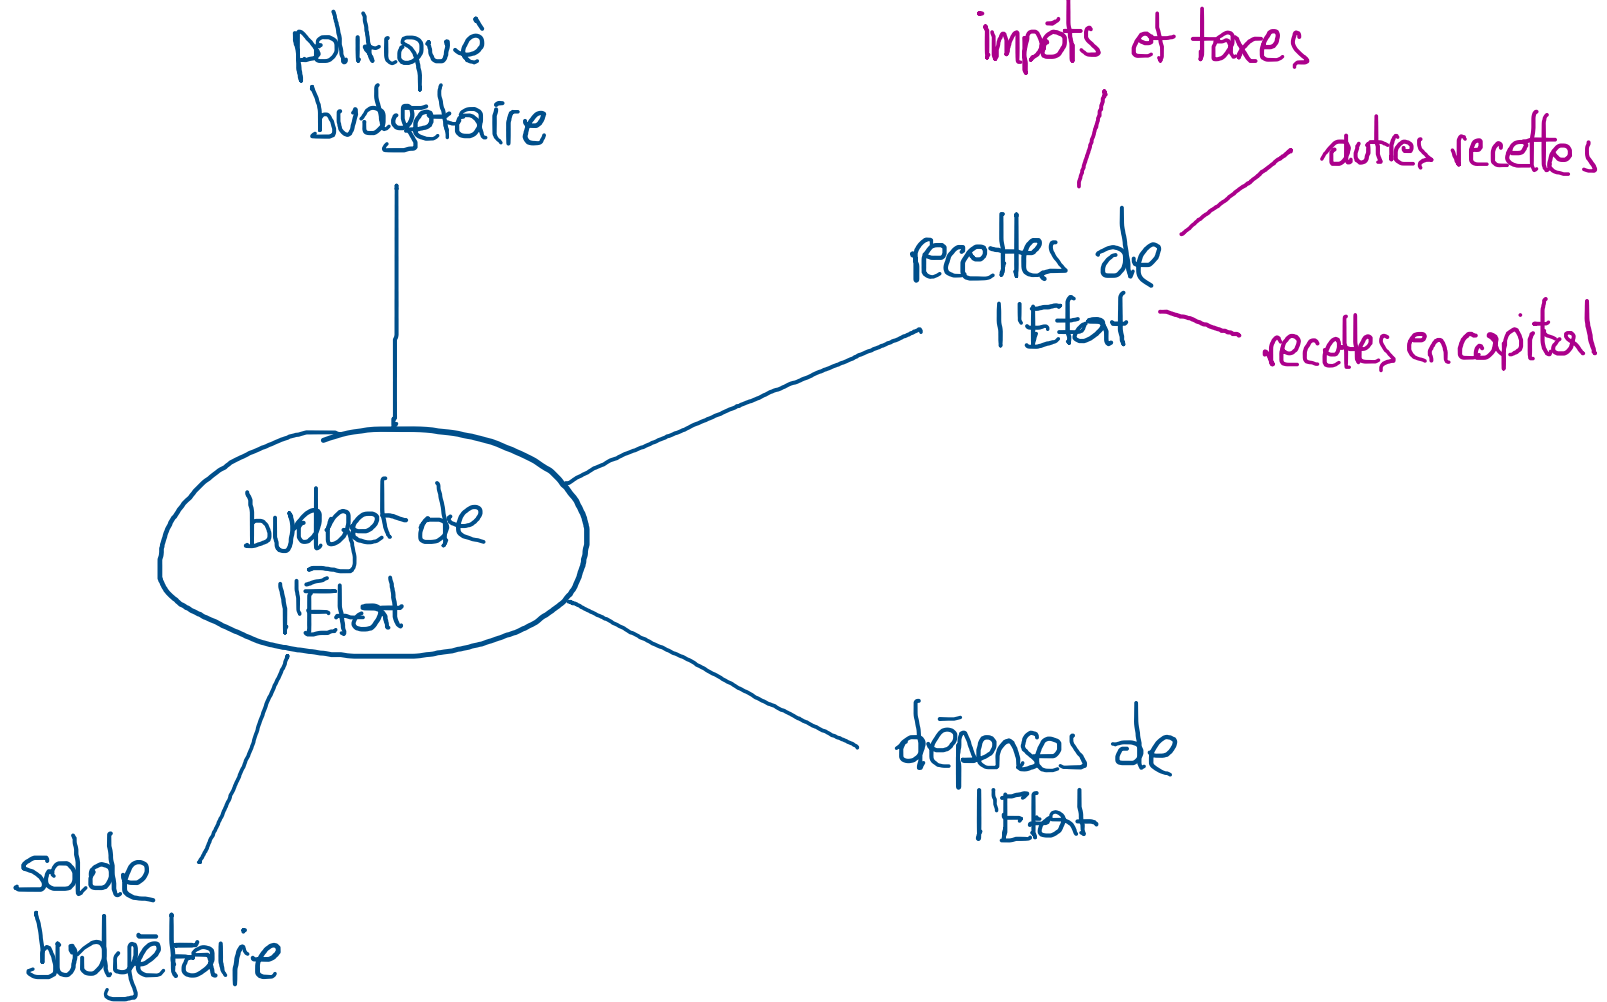 politique
budgétaire
impôts et taxes
autres recettes
recettes de
l'Etat
recettes en capital
budget de
l'État
dépenses de
l'Etat
solde
budgétaire